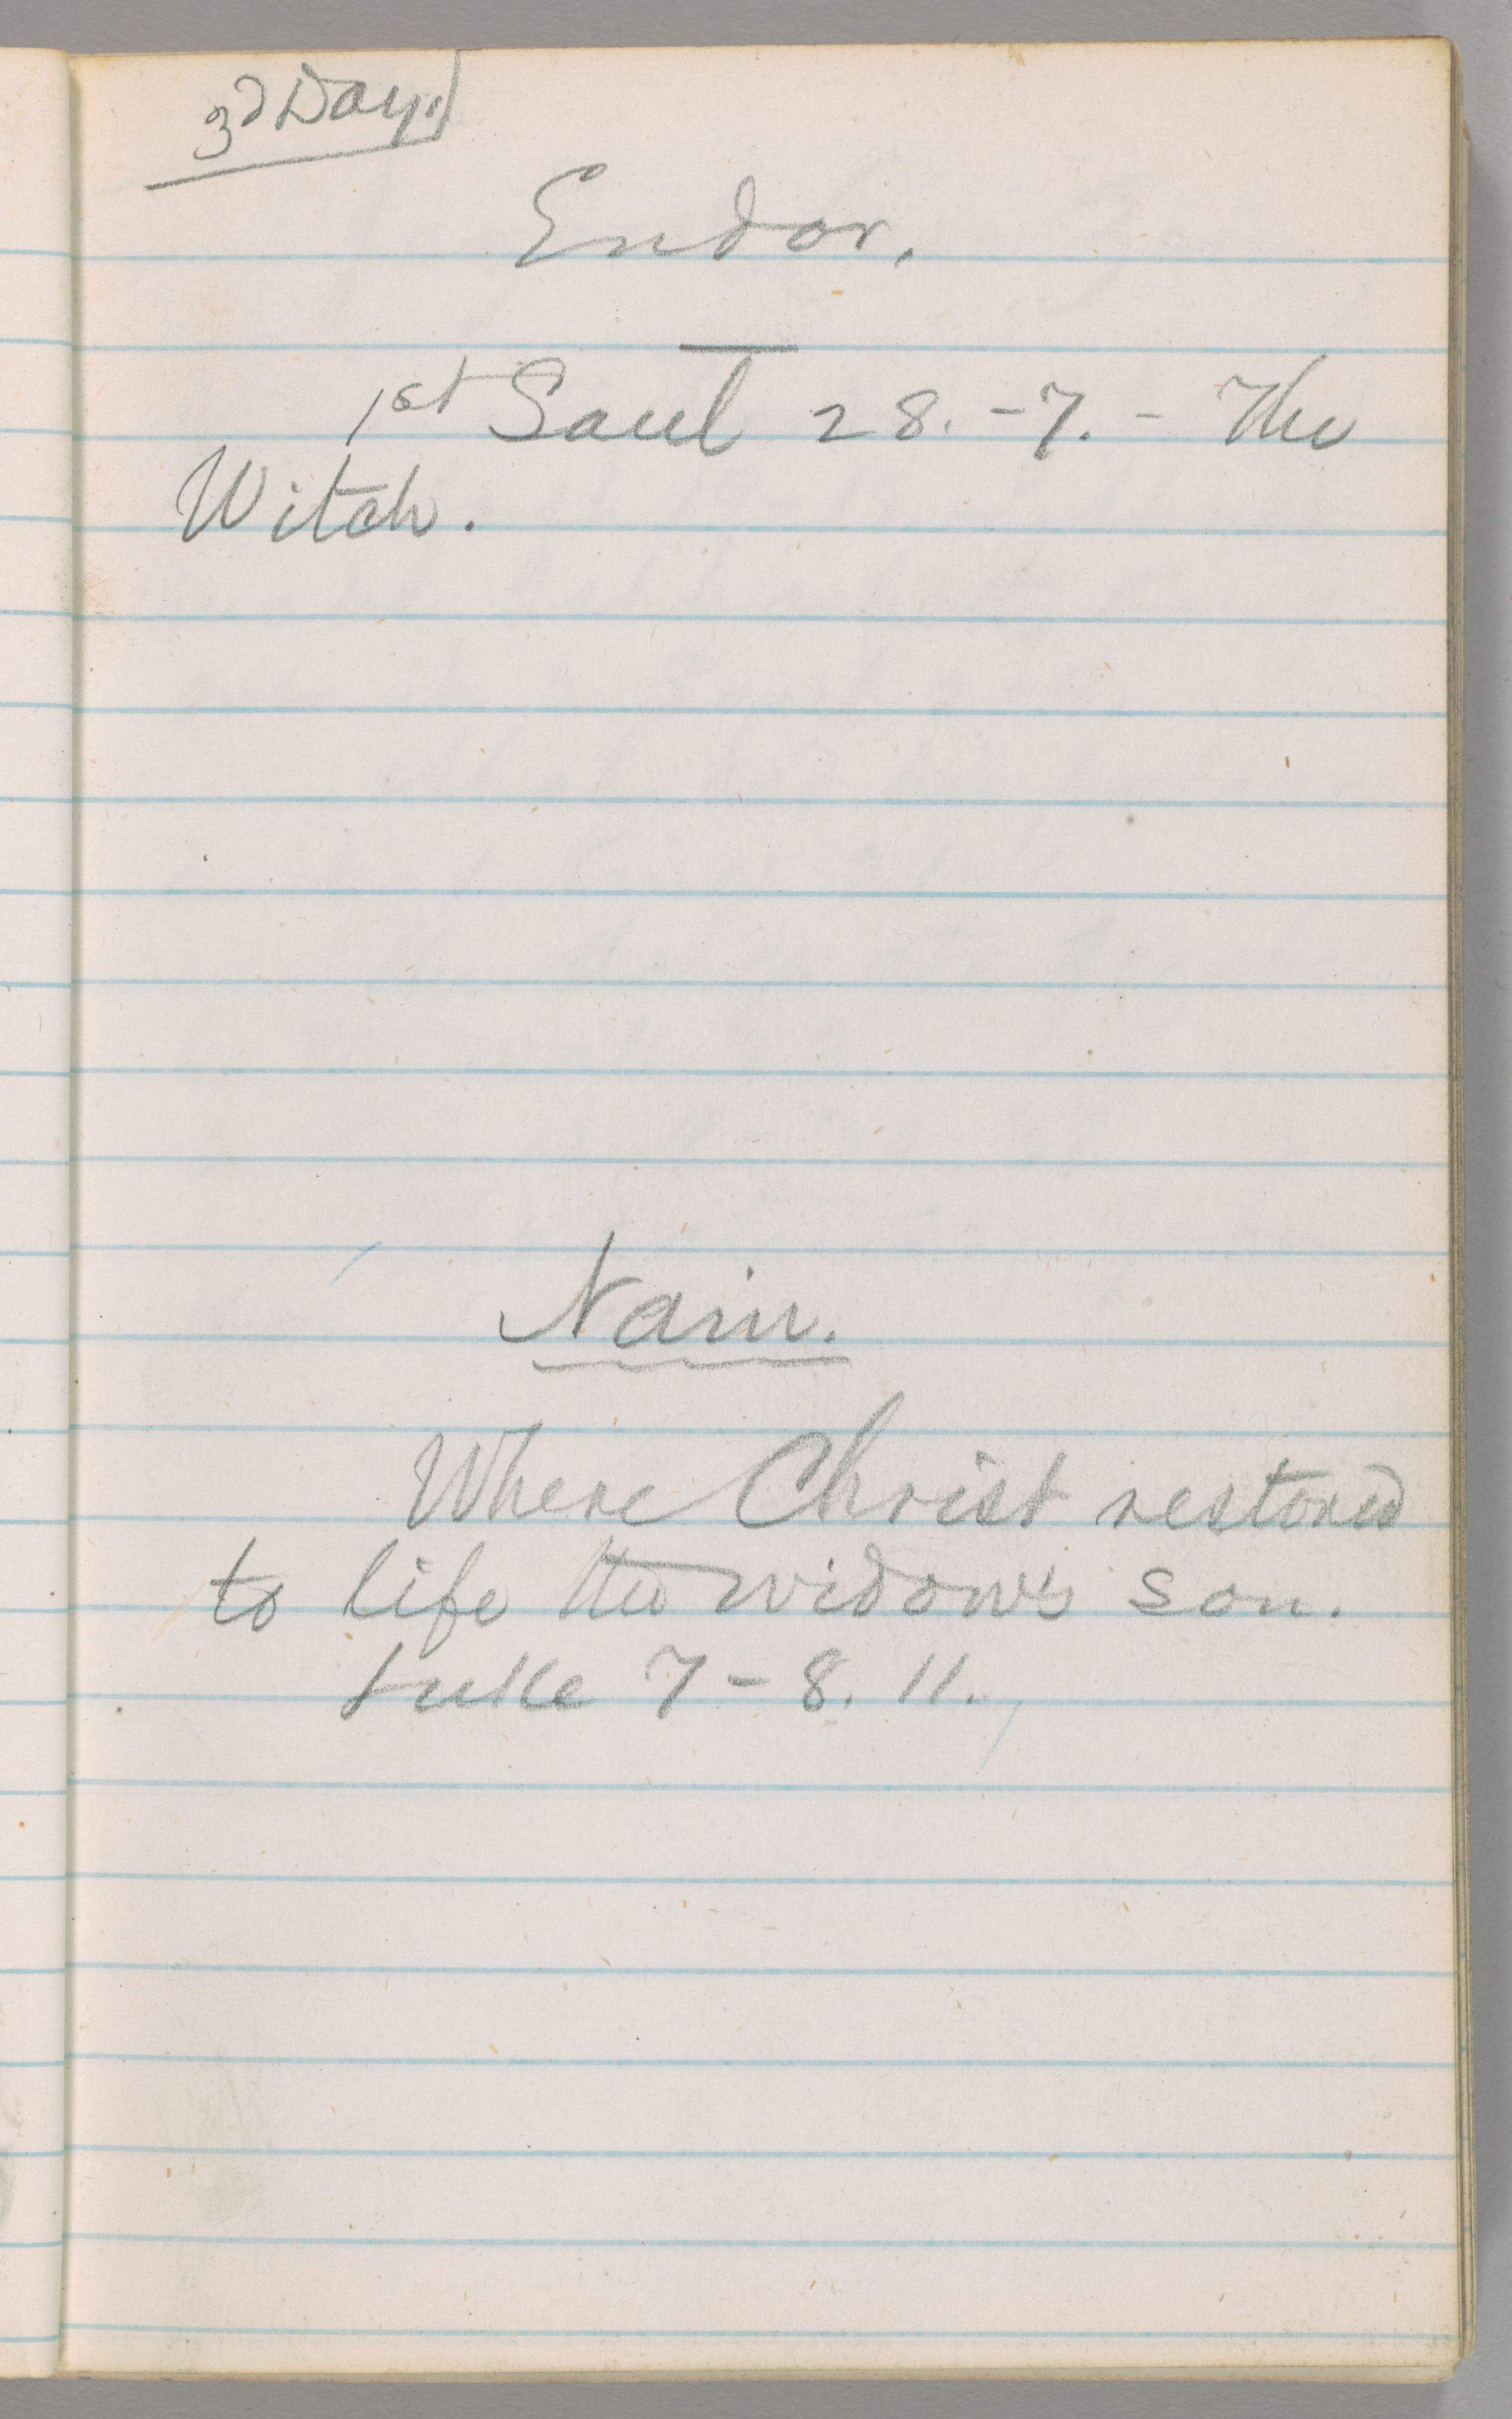 3d Day.
Endor.
1st Saul 28. - 7. - The
Witch.
Nain.
Where Christ restored
to life the widow's son.
Luke 7 - 8. 11.